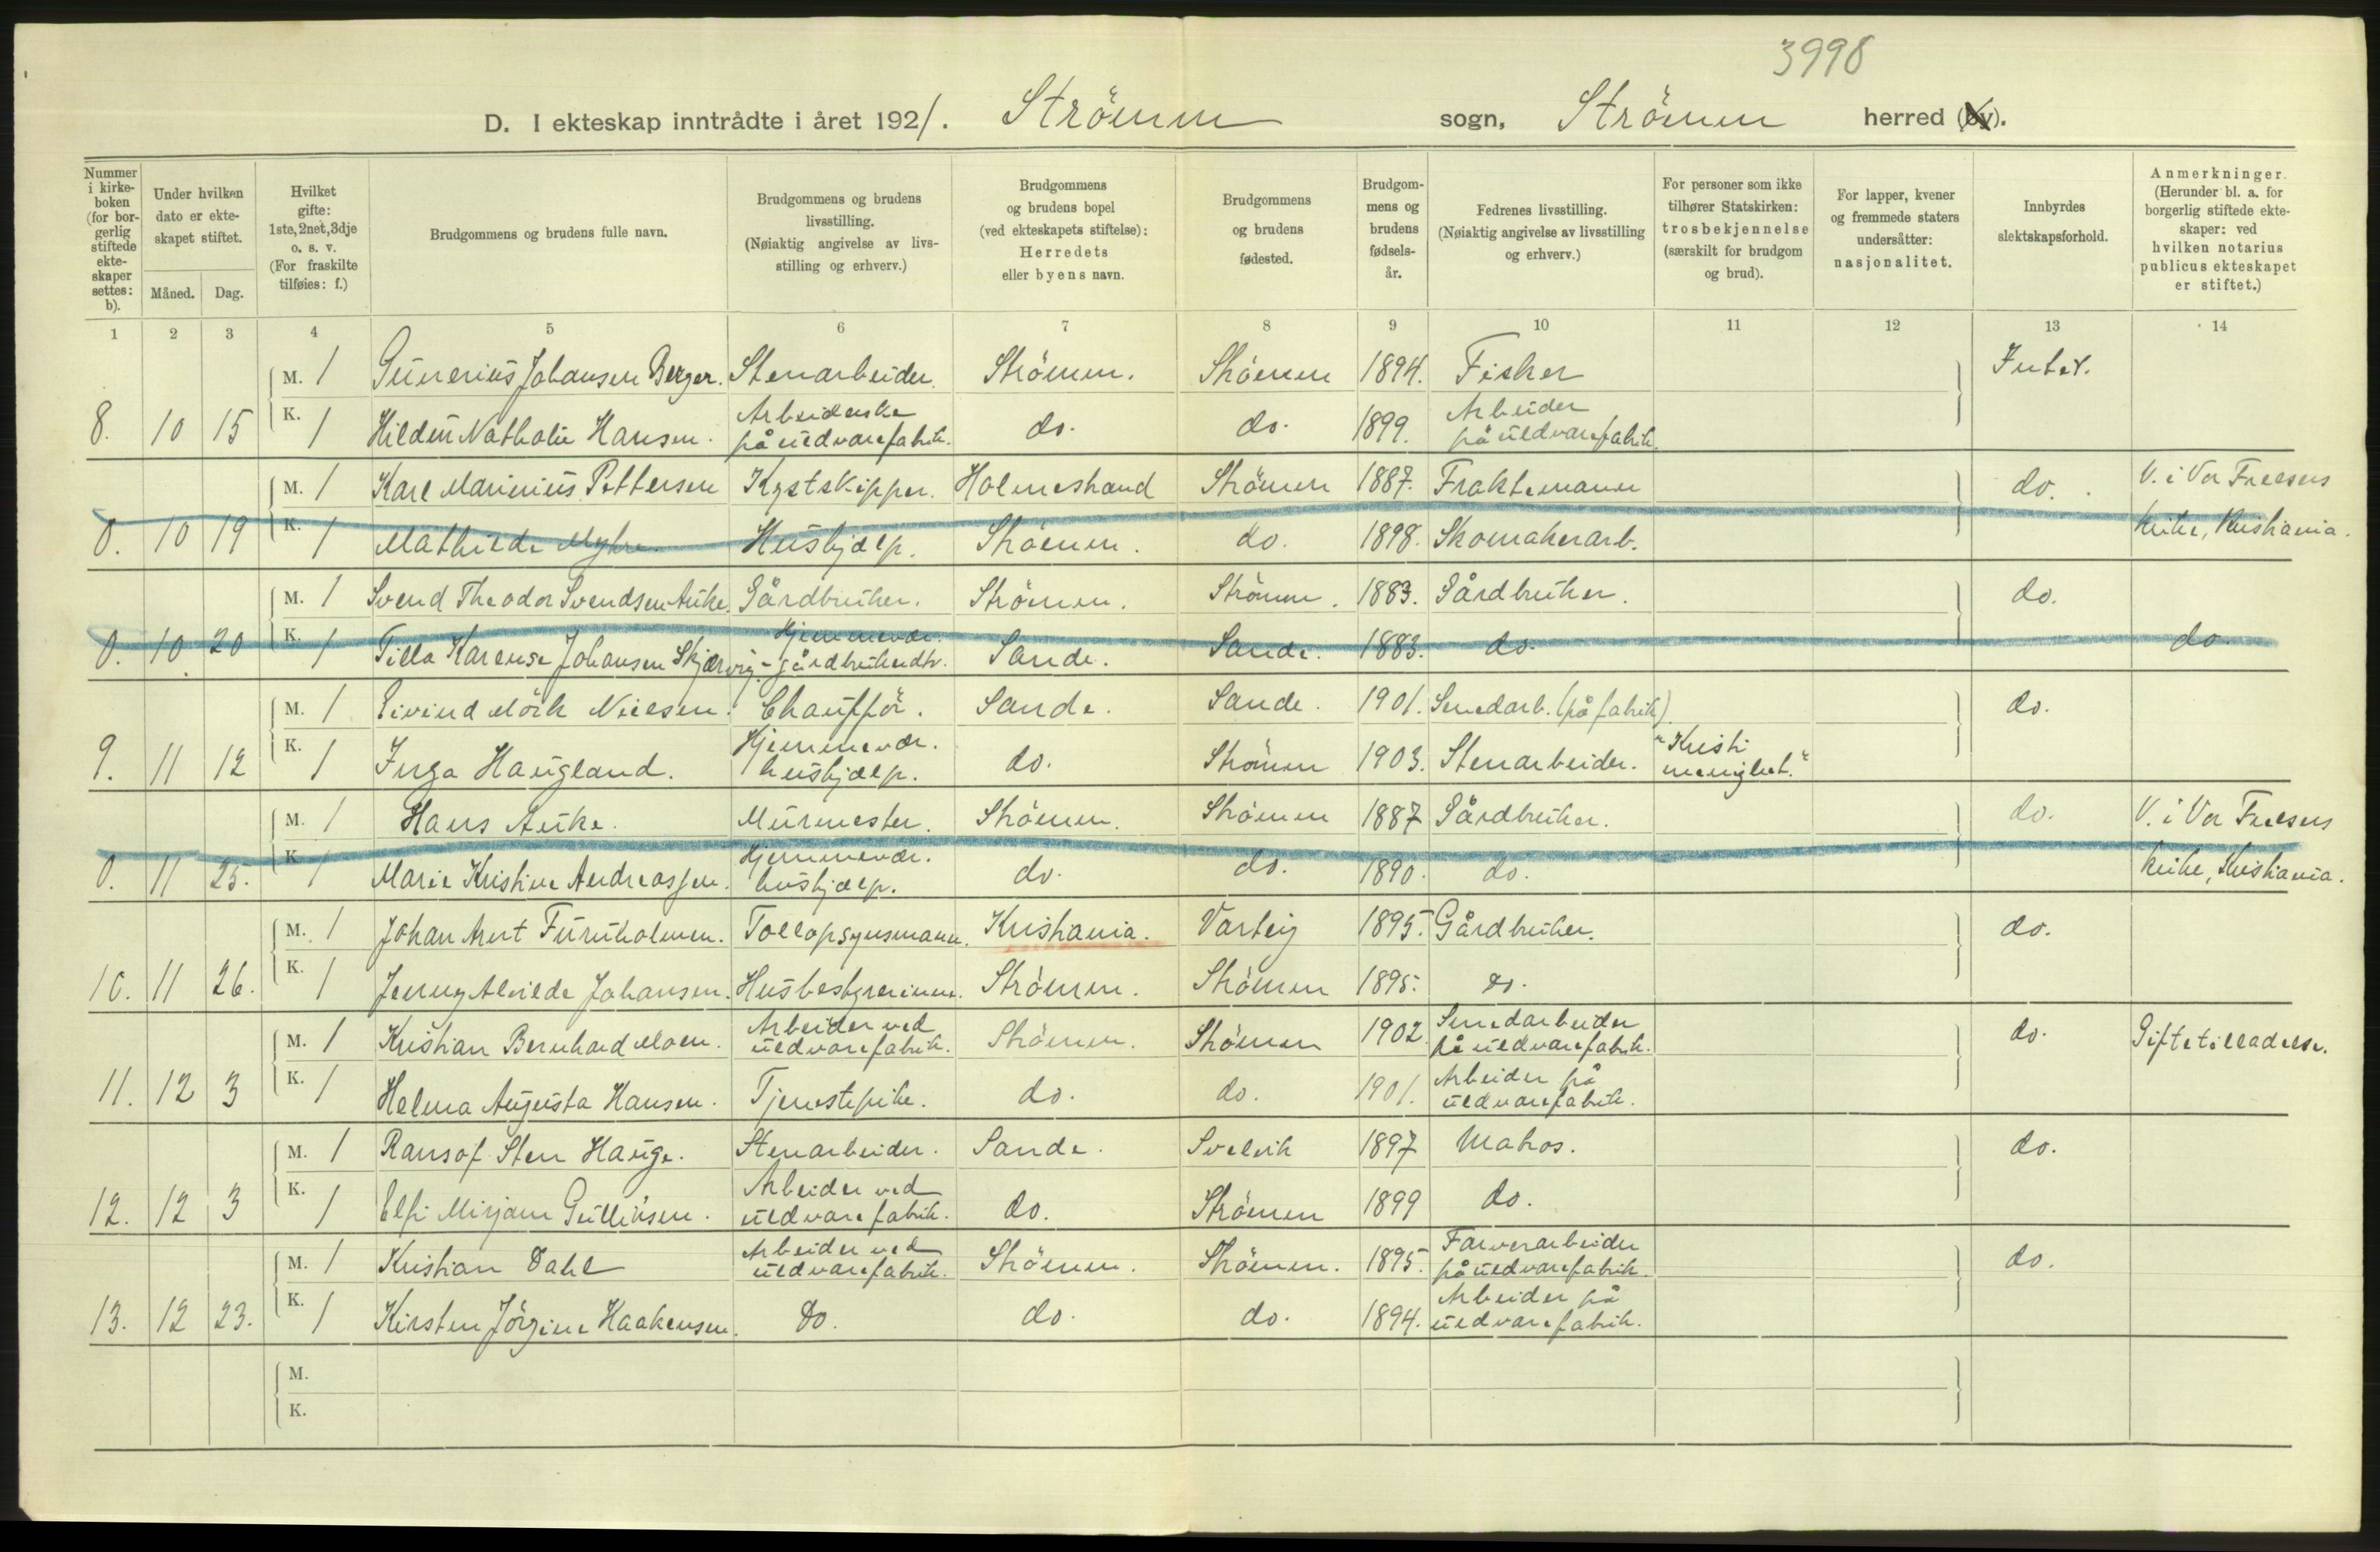 3998
D. I ekteskap inntrådte i året 1921. Strömm sogn, Strömm herred (by).
Nummer i kirkeboken (for borgerlig stiftede ekteskaper settes: b).
Under hvilken dato er ekteskapet stiftet.
Måned. Dag.
Hvilket gifte: 1ste, 2net, 3dje o. s. v. (For fraskilte tilføies: f.)
Brudgommens og brudens fulle navn.
Brudgommens og brudens livsstilling. (Nøiaktig angivelse av livsstilling og erhverv.)
Brudgommens og brudens bopel (ved ekteskapets stiftelse): Herredets eller byens navn.
Brudgommens og brudens fødested.
Brudgommens og brudens fødselsår.
Fedrenes livsstilling. (Nøiaktig angivelse av livsstilling og erhverv.)
For personer som ikke tilhører Statskirken: trosbekjennelse (særskilt for brudgom og brud).
For lapper, kvener og fremmede staters undersåtter: nasjonalitet.
Innbyrdes slektskapsforhold.
Anmerkninger. (Herunder bl. a. for borgerlig stiftede ekteskaper: ved hvilken notarius publicus ekteskapet er stiftet.)
1 2 3 4 5 6 7 8 9 10 11 12 13 14
M. 1 Gunerius Johansen Berger. Stenarbeider. Strömm. Strömm 1894. Fisker Intet.
8. 10 15 K. 1 Hildur Nathalie Hansen. Arbeiderske på uldvarefabrik. do. do. 1899. Arbeider på uldvarefabrik.
M. 1 Karl Marinius Pettersen Kystskipper. Holmestrand Strömm 1887. Fraktemann do. V. i Vor Frelsers
0. 10 19 K. 1 Mathilde Myhre. Hushjælp. Strömm. do. 1898. Skomakerarb. kirke, Kristiania.
M. 1 Svend Theodor Svendsen Auke. Gårdbruker. Strömm. Strömm. 1883. Gårdbruker. do.
0. 10 20 K. 1 Tilla Karense Johansen Skjærvig Hjemmevær. - gårdbrukerdtr. Sande. Sande. 1883. do. do.
M. 1 Eivind Mörk Nielsen. Chaufför. Sande. Sande. 1901. Smedarb. (på fabrik). do.
9. 11 12 K. 1 Inga Haugland. Hjemmevær. hushjælp. do. Strömm 1903. Stenarbeider. "Kristi menighet."
M. 1 Hans Auke. Murmester. Strömm. Strömm 1887 Gårdbruker. do. V. i Vor Frelsers
0. 11 25. K. 1 Marie Kristine Andreassen. Hjemmevær. hushjælp. do. do. 1890. do. kirke, Kristiania.
M. 1 Johan Arnt Furuholmen. Tollopsynsmann. Kristiania. Varteig 1895. Gårdbruker. do.
10. 11 26. K. 1 Jenny Alvilde Johansen. Husbestyrerinne. Strömm. Strömm 1895. do.
M. 1 Kristian Bernhard Moen. Arbeider ved uldvarefabrik. Strömm. Strömm 1902. Smedarbeider på uldvarefabrik. do. Giftetilladelse.
11. 12 3 K. 1 Helma Augusta Hansen. Tjenestepike. do. do. 1901. Arbeider på uldvarefabrik.
M. 1 Sten Hauge. Stenarbeider. Sande. Svelvik 1897 Matros. do.
12. 12 3 K. 1 Elfi Mirjam Gulliksen. Arbeider ved uldvarefabrik. do. Strömm 1899 do.
M. 1 Kristian Dahl Arbeider ved uldvarefabrik. Strömm. Strömm. 1895. Farverarbeider på uldvarefabrik. do.
13. 12 23. K. 1 Kirsten Jörgine Haakensen. Do. do. do. 1894. Arbeider på uldvarefabrik.
M.
K.